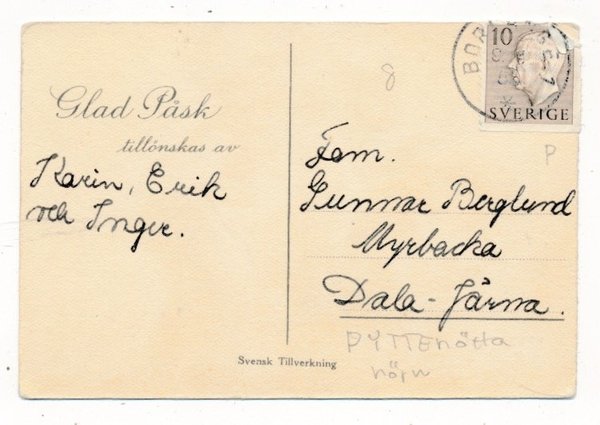 Glad Påsk
tillönskas av
Karin, Erik
och Inger.
8
BORLÄNGE 1
10
SVERIGE
P
Fam.
Gunnar Berglund
Myrbacka
Dala-Järna.
PYTTEnötta
Svensk Tillverkning